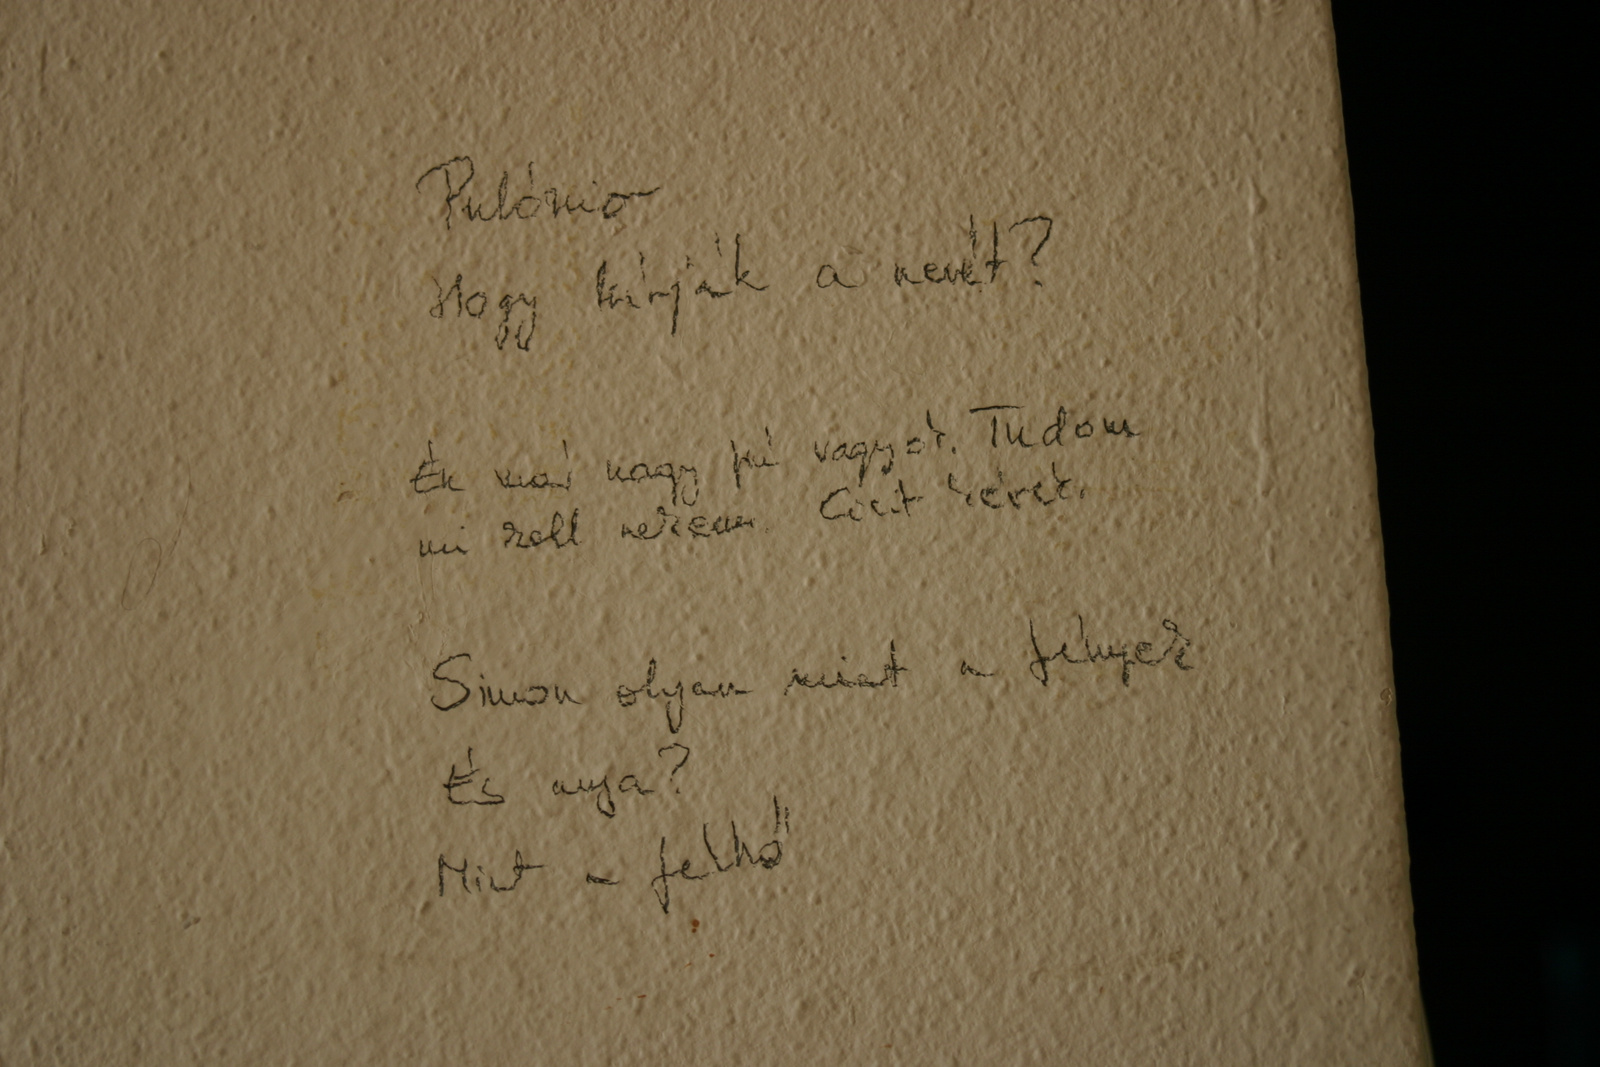 Pulónio
Hogy hívják a nevét?
Én már nagy fiú vagyok. Tudom
mi kell nekem. Cicit kérek.
Simon olyan mint a fények
És anya?
Mint a felhő